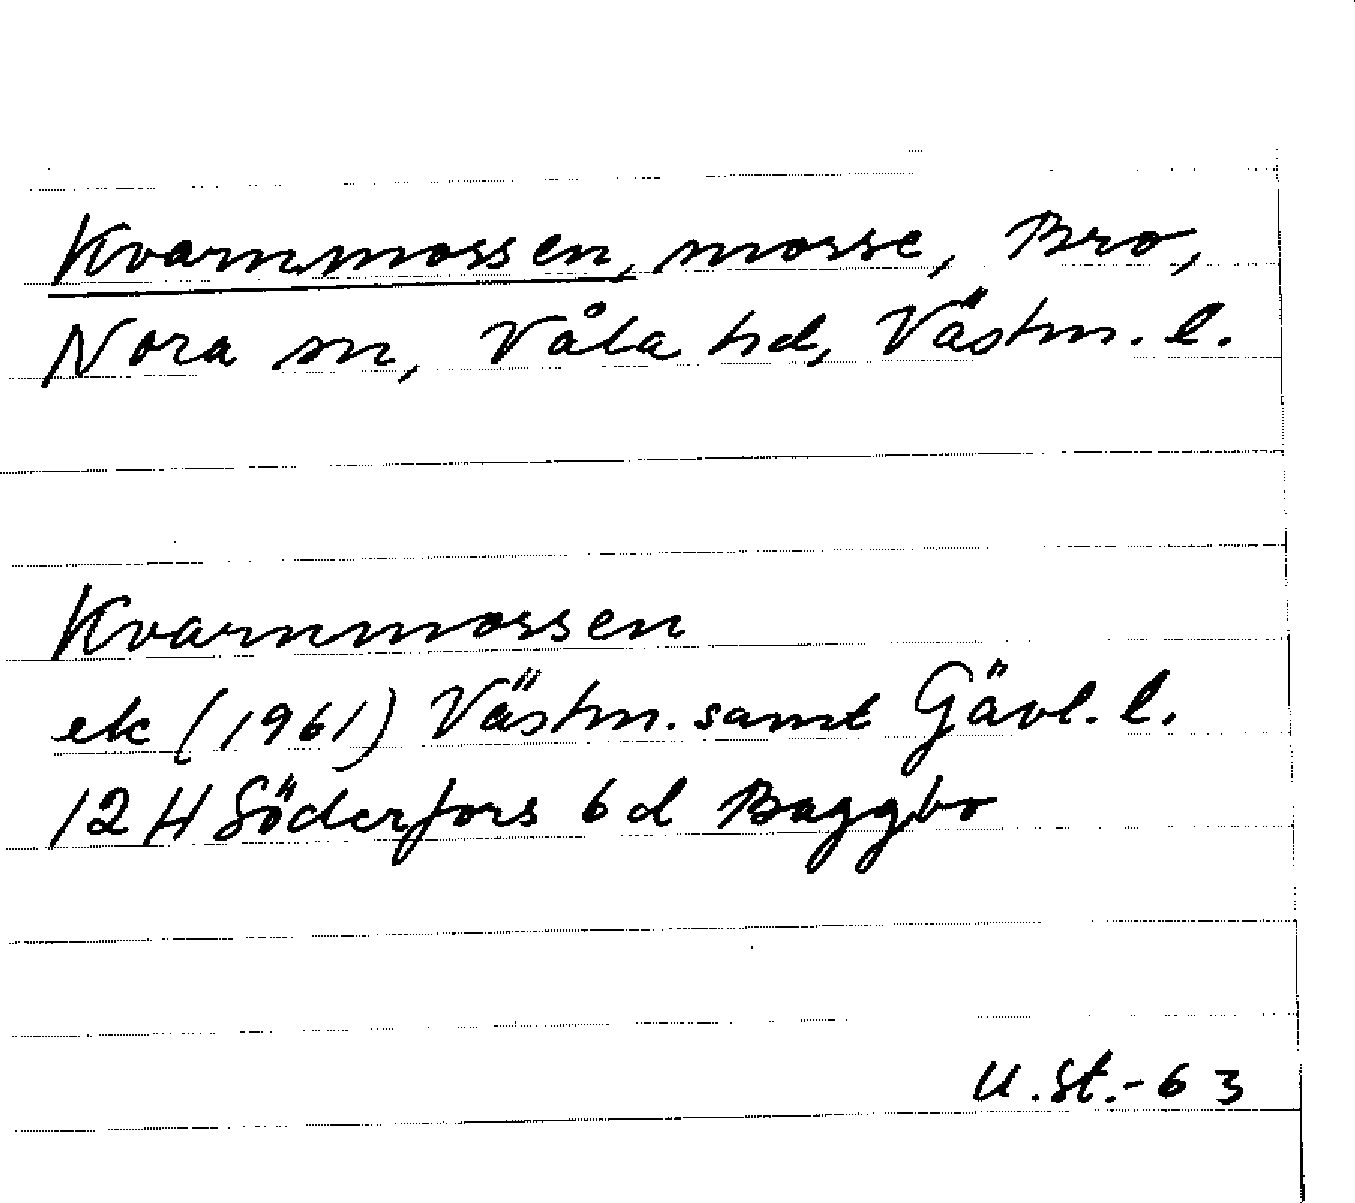 Kvarnmossen, mosse, Bro,
Nora sn, Våla hd, Västm. l.
Kvarnmossen
ek (1961) Västm. samt Gävl. l.
12 H Söderfors 6 d Baggbo
U. St. - 63